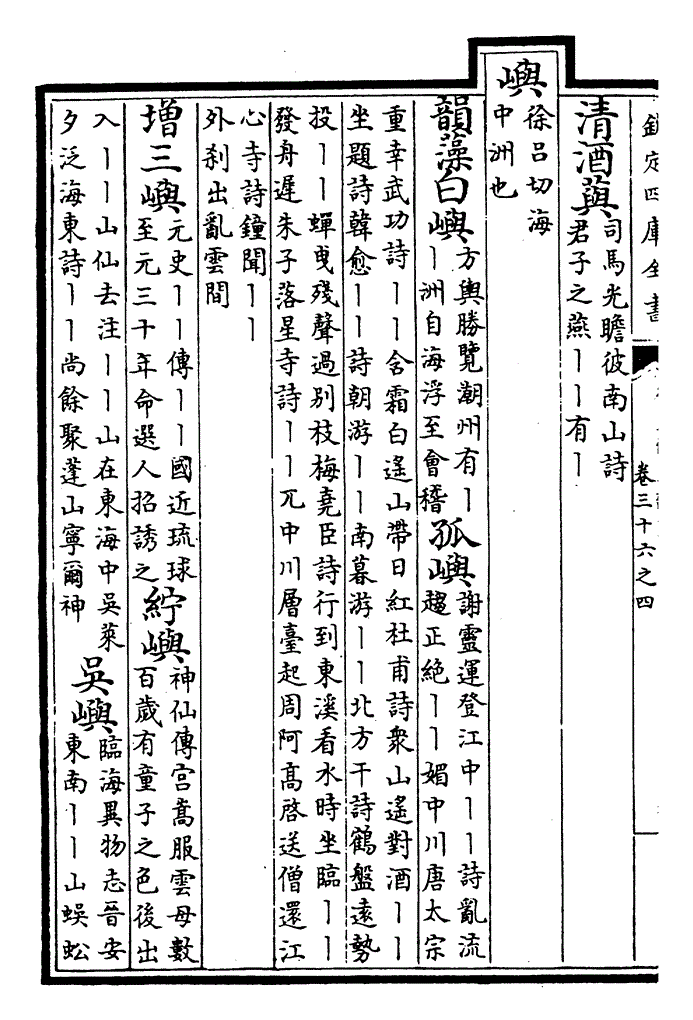 欽定四庫全書
卷三十六之四
清酒藇
司馬光瞻彼南山詩
君子之燕丨丨有丨
嶼
徐呂切海
中洲也
韻藻白嶼
方輿勝覽潮州有丨
丨洲自海浮至會稽
孤嶼
謝靈運登江中丨丨詩亂流
趨正絶丨丨媚中川唐太宗
重幸武功詩丨丨含霜白遙山帶日紅杜甫詩衆山遙對酒丨丨
坐題詩韓愈丨丨詩朝游丨丨南暮游丨丨北方干詩鶴盤遠勢
投丨丨蟬曳殘聲過别枝梅堯臣詩行到東溪看水時坐臨丨丨
發舟遲朱子落星寺詩丨丨兀中川層臺起周阿高啓送僧還江
心寺詩鐘聞丨丨
外刹出亂雲間
增三嶼
元史丨丨傳丨丨國近琉球
至元三十年命選人招誘之
紵嶼
神仙傳宫嵩服雲母數
百歲有童子之色後出
入丨丨山仙去注丨丨山在東海中吳萊
夕泛海東詩丨丨尚餘聚蓬山寧爾神
吳嶼
臨海異物志晉安
東南丨丨山蜈蚣